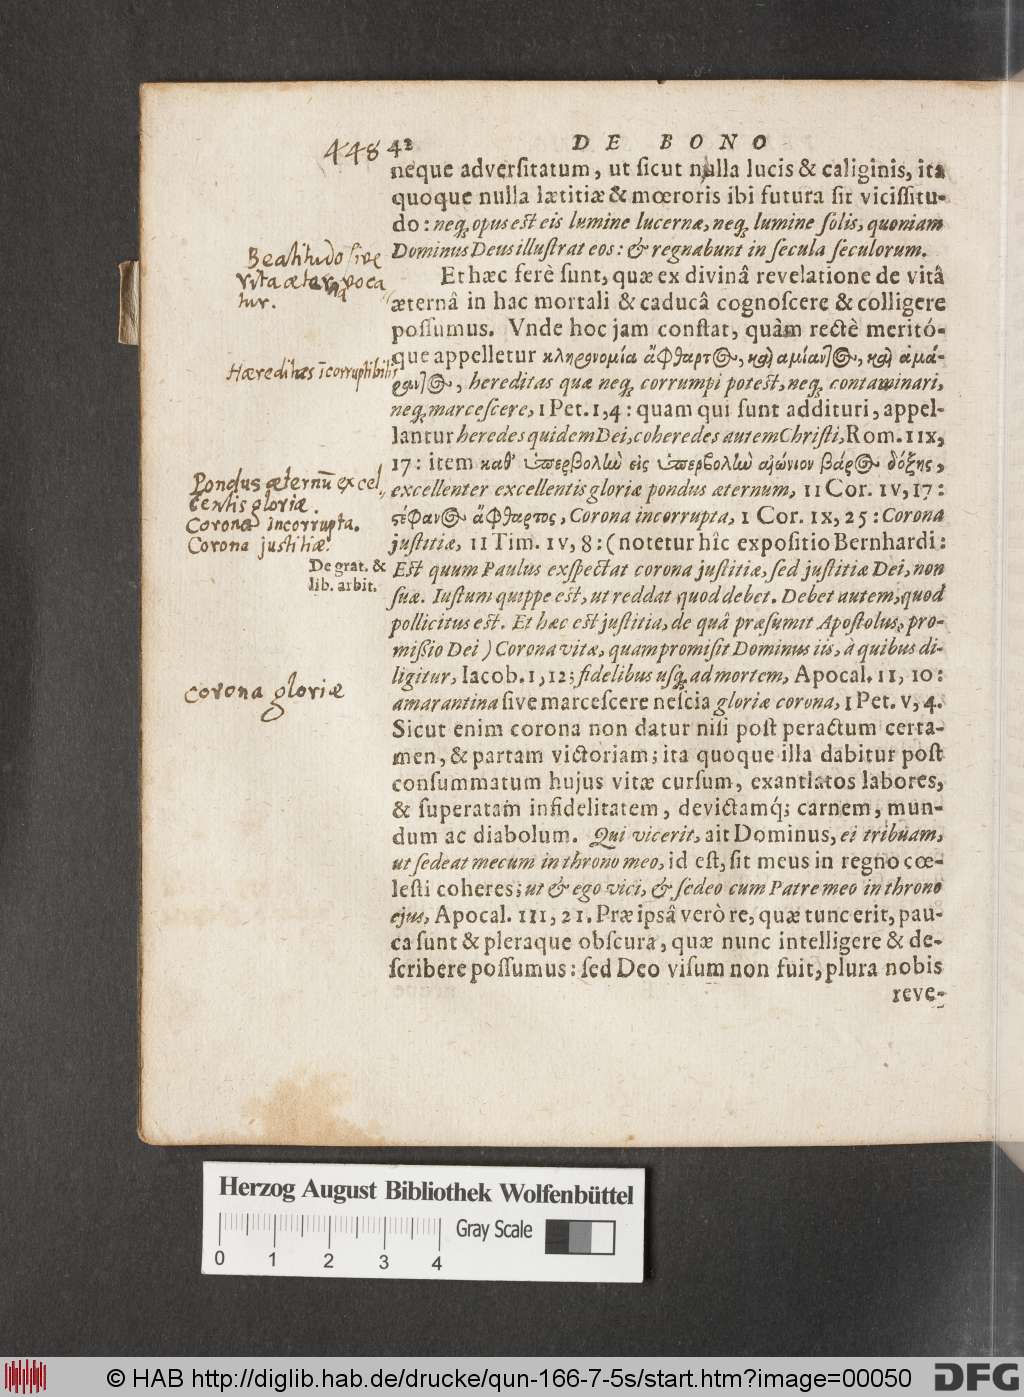 448 42 DE BONO
neque adversitatum, ut sicut nulla lucis & caliginis, ita
quoque nulla lætitiæ & mœroris ibi futura sit vicissitu-
do: neq; opus est eis lumine lucernæ, neq; lumine solis, quoniam
Dominus Deus illustrat eos: & regnabunt in secula seculorum.
Beatitudo sive
vita æterna voca
tur.
Et hæc ferè sunt, quæ ex divinâ revelatione de vitâ
æternâ in hac mortali & caducâ cognoscere & colligere
possumus. Vnde hoc jam constat, quàm rectè meritó-
que appelletur κληρονομία ἄφθαρτος, καὶ ἀμίαντος, καὶ ἀμά-
Hæreditas incorruptibilis
ραντος, hereditas quæ neq; corrumpi potest, neq; contaminari,
neq; marcescere, 1 Pet. 1, 4: quam qui sunt addituri, appel-
lantur heredes quidem Dei, coheredes autem Christi, Rom. IIX,
17: item καθ' ὑπερβολὴν εἰς ὑπερβολὴν αἰώνιον βάρος δόξης,
Pondus æternū excel
lentis gloriæ.
excellenter excellentis gloriæ pondus æternum, II Cor. IV, 17:
Corona incorrupta.
στέφανος ἄφθαρτος, Corona incorrupta, 1 Cor. IX, 25: Corona
Corona justitiæ.
justitiæ, II Tim. IV, 8: (notetur hîc expositio Bernhardi:
De grat. &
lib. arbit.
Est quum Paulus exspectat corona justitiæ, sed justitiæ Dei, non
suæ. Iustum quippe est, ut reddat quod debet. Debet autem, quod
pollicitus est. Et hæc est justitia, de quâ præsumit Apostolus, pro-
missio Dei) Corona vitæ, quam promisit Dominus iis, à quibus di-
ligitur, Iacob. 1, 12; fidelibus usq; ad mortem, Apocal. II, 10:
corona gloriæ
amarantina sive marcescere nescia gloriæ corona, 1 Pet. V, 4.
Sicut enim corona non datur nisi post peractum certa-
men, & partam victoriam; ita quoque illa dabitur post
consummatum hujus vitæ cursum, exantlatos labores,
& superatam infidelitatem, devictamq́; carnem, mun-
dum ac diabolum. Qui vicerit, ait Dominus, ei tribuam,
ut sedeat mecum in throno meo, id est, sit meus in regno cœ-
lesti coheres; ut & ego vici, & sedeo cum Patre meo in throno
ejus, Apocal. III, 21. Præ ipsâ verò re, quæ tunc erit, pau-
ca sunt & pleraque obscura, quæ nunc intelligere & de-
scribere possumus: sed Deo visum non fuit, plura nobis
reve-
Herzog August Bibliothek Wolfenbüttel
Gray Scale
0 1 2 3 4
© HAB http://diglib.hab.de/drucke/qun-166-7-5s/start.htm?image=00050 DFG